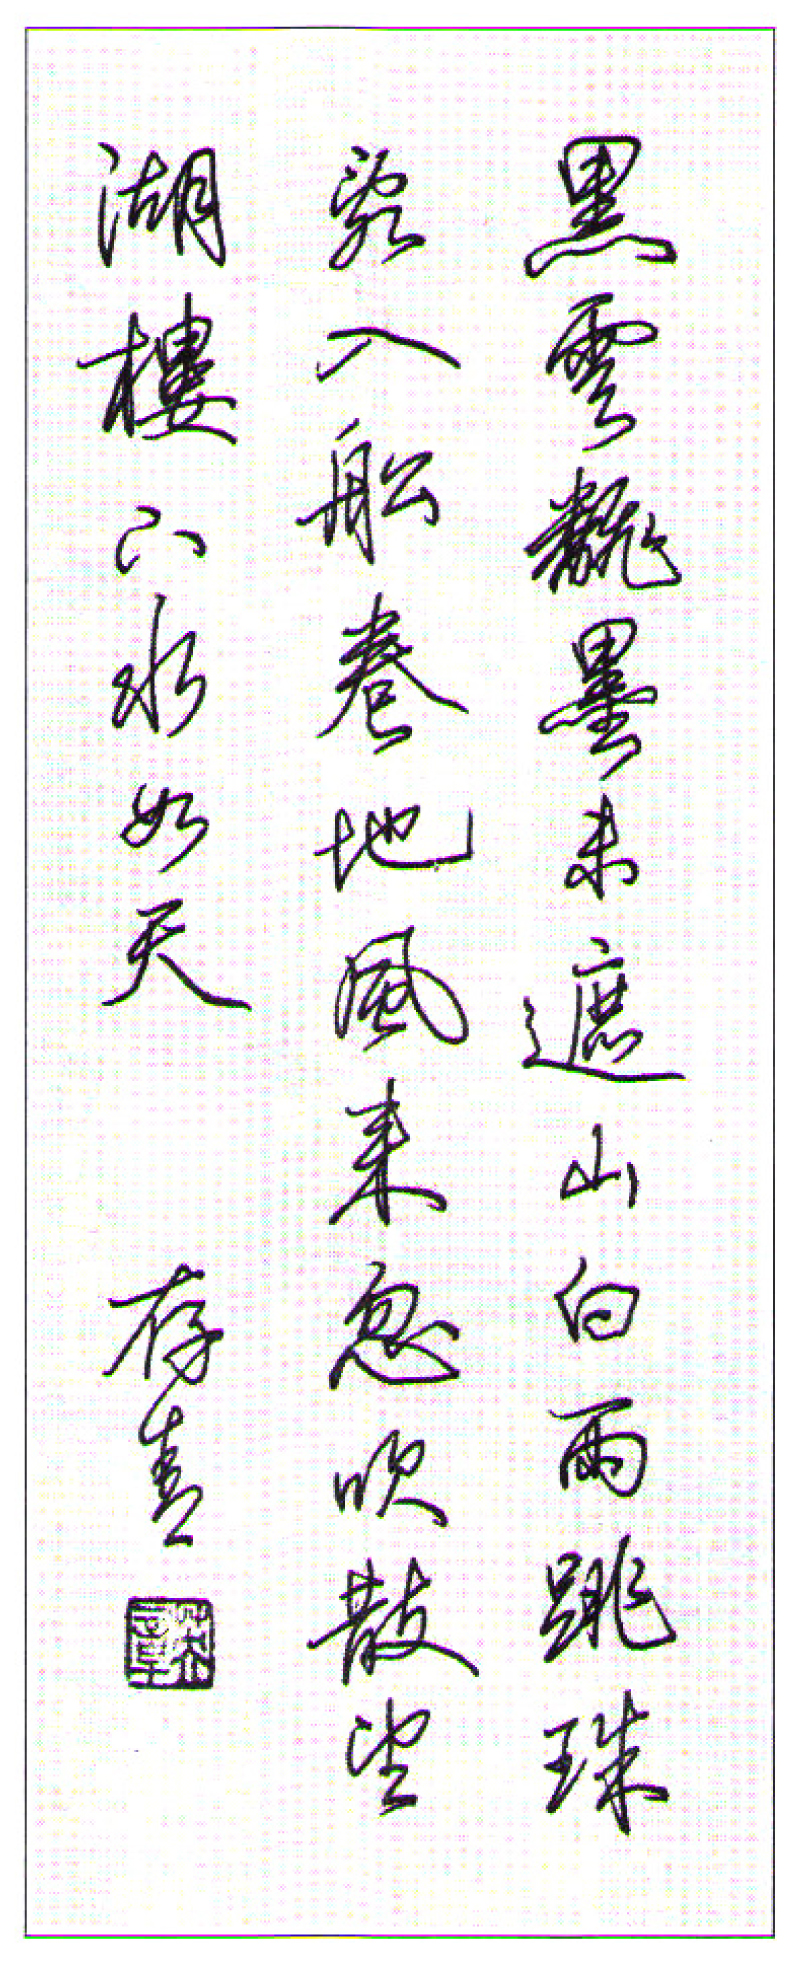 黑雲飜墨未遮山白雨跳珠
亂入船卷地風來忽吹散望
湖樓下水如天
存喜